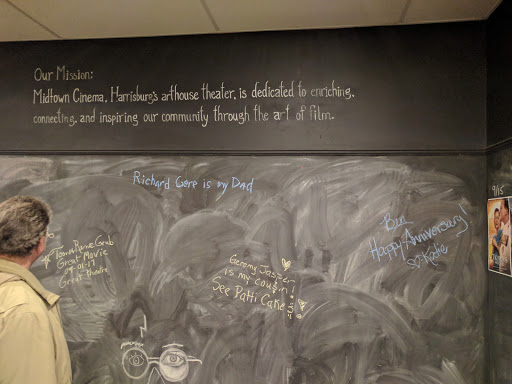 Our Mission:
Midtown Cinema, Harrisburg's arthouse theater, is dedicated to enriching,
connecting, and inspiring our community through the art of film.
Richard Gere is my DAD
9/15
Ben
Happy Anniversary!
Great Movie
09-01-17
Great theatre
Gemmy Jasper
is my cousin!
See Patti Cake